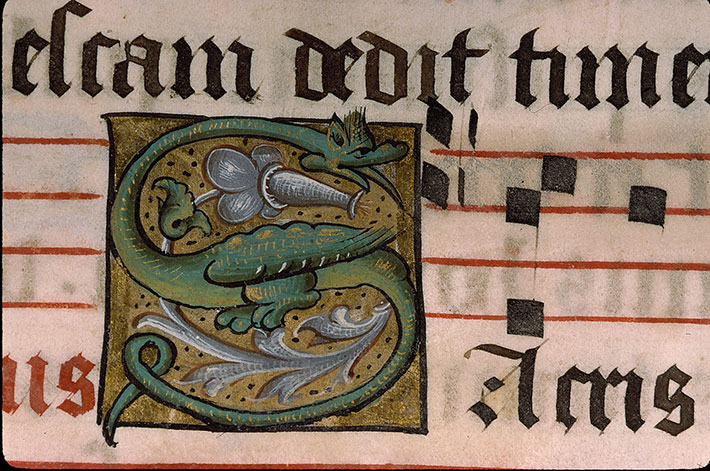 eſcam dedit time
uis SAcris